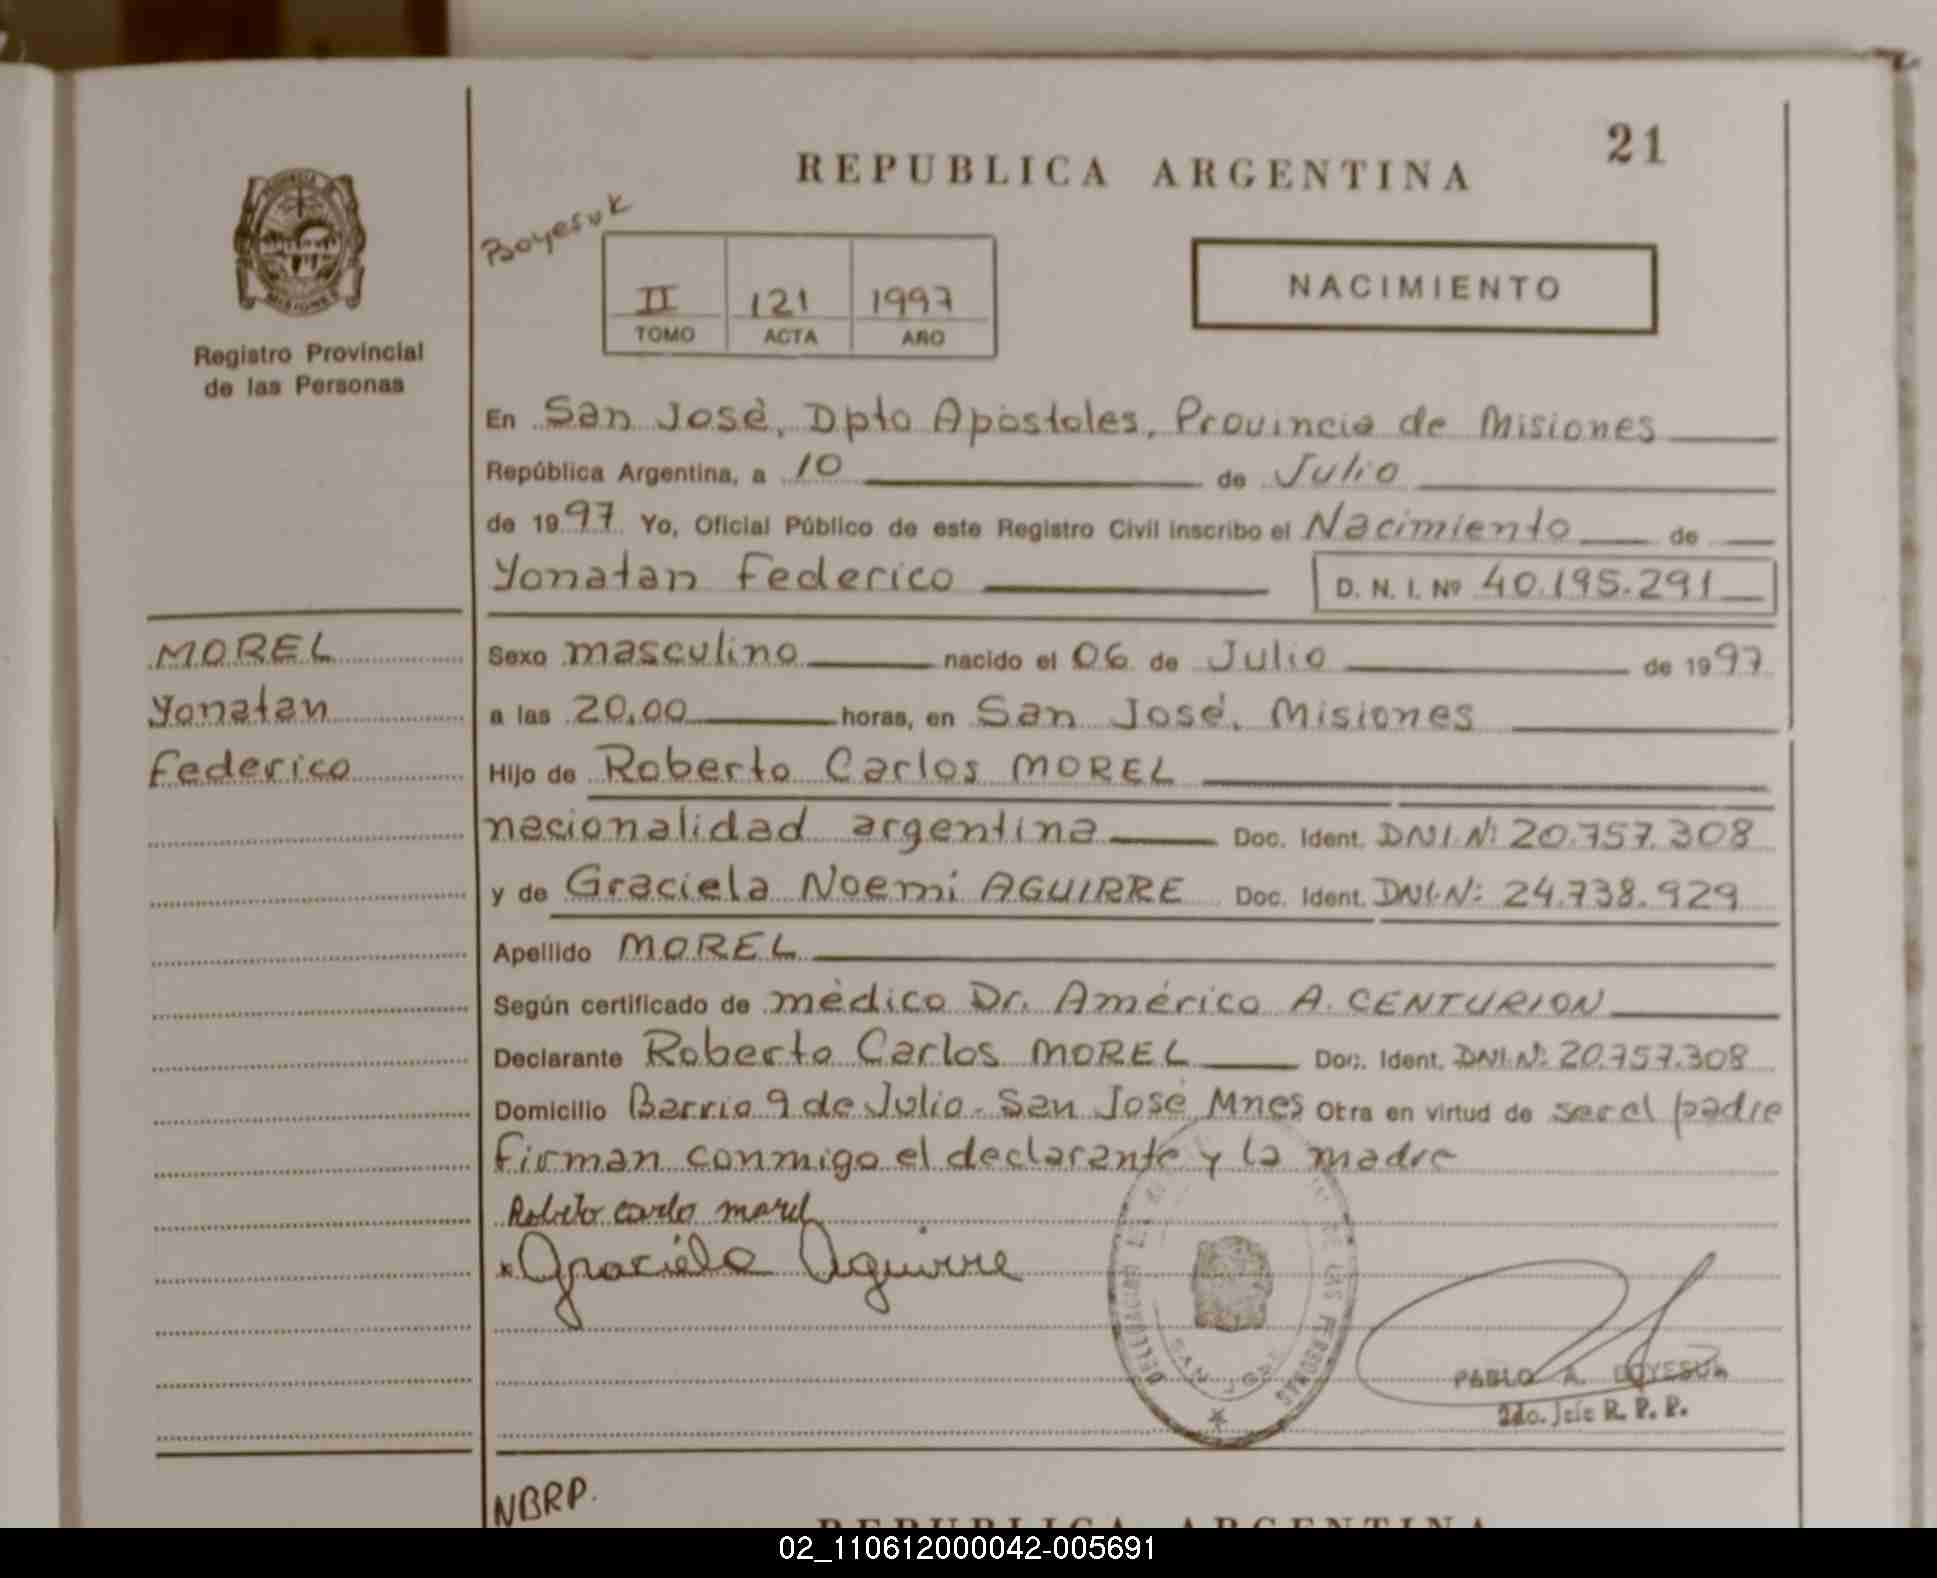 21
REPUBLICA ARGENTINA
Boyesuk
II 121 1997
TOMO ACTA AÑO
NACIMIENTO
Registro Provincial
de las Personas
En San José, Dpto Apóstoles, Provincia de Misiones
República Argentina, a 10 de Julio
de 1997 Yo, Oficial Público de este Registro Civil inscribo el Nacimiento de
Yonatan Federico D. N. I. Nº 40.195.291
MOREL
Yonatan
Federico
Sexo masculino nacido el 06 de Julio de 1997
a las 20,00 horas, en San José, Misiones
Hijo de Roberto Carlos MOREL
nacionalidad argentina Doc. Ident. DNI.Nº 20.757.308
y de Graciela Noemi AGUIRRE Doc. Ident. DNI.Nº 24.738.929
Apellido MOREL
Según certificado de médico Dr. Américo A. CENTURION
Declarante Roberto Carlos MOREL Doc. Ident. DNI.Nº 20.757.308
Domicilio Barrio 9 de Julio. San José Mnes Obra en virtud de ser el padre
firman conmigo el declarante y la madre
Roberto carlo morel
Graciela Aguirre
DE LAS PERSONAS
SAN JOSE
PABLO A. BOYESUK
2do. Jefe R. P. P.
NBRP.
REPUBLICA ARGENTINA
02_110612000042-005691